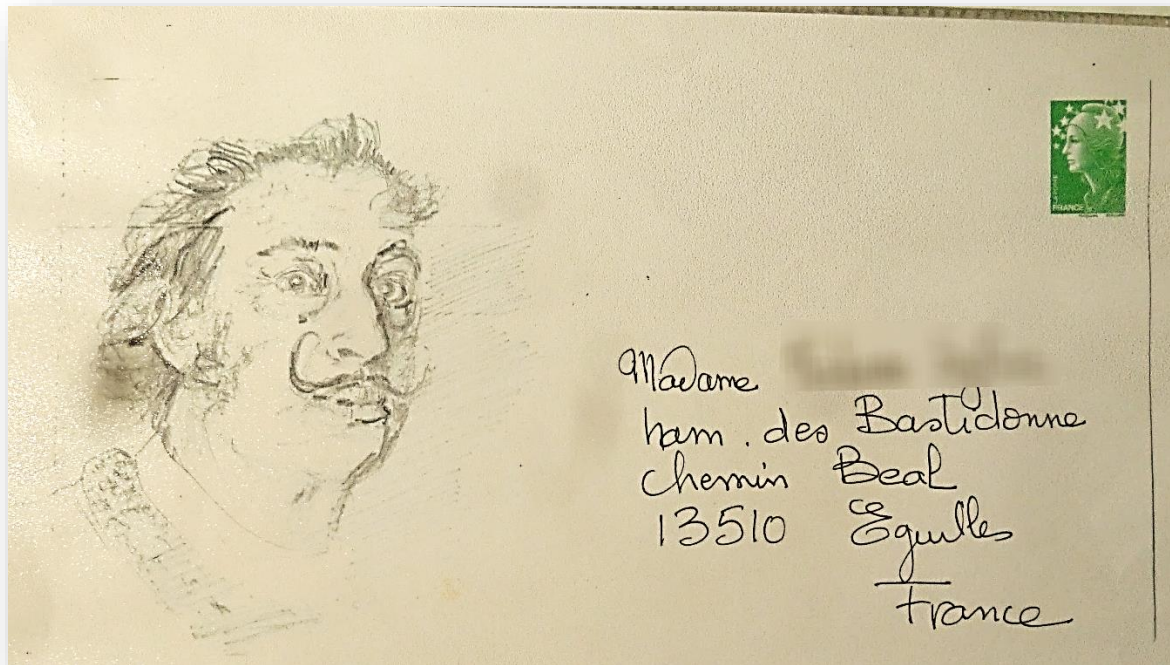 FRANCE
Madame
ham. des Bastidonne
chemin Beal
13510 Eguilles
France